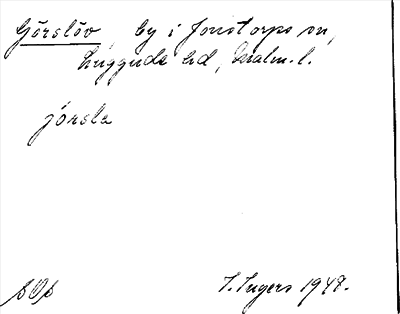 Görslöv, by i Jonstorps sn,
Luggude hd, Malm. l.
jörsla
I. Ingers 1947.